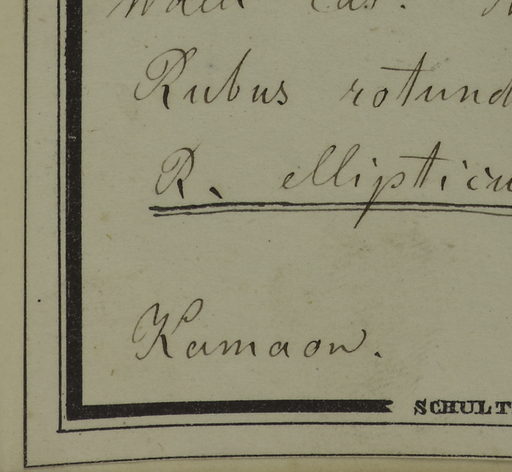 Rubus rotund
R. ellipticu
Kamaon.
SCHULT